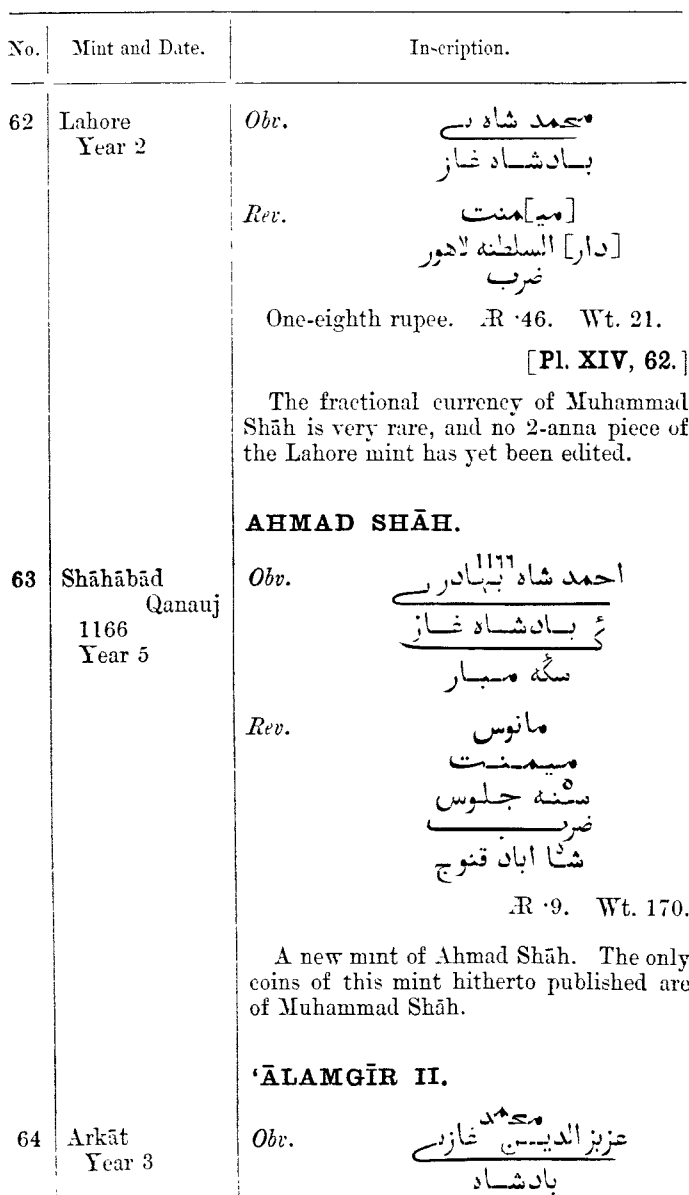 No. Mint and Date. Inscription.
62 Lahore
Year 2
Obv. محمد شاه بے
بادشاه غاز
Rev. [می]منت
[دار] السلطنه لاهور
ضرب
One-eighth rupee. Æ ·46. Wt. 21.
[Pl. XIV, 62.]
The fractional currency of Muhammad
Shāh is very rare, and no 2-anna piece of
the Lahore mint has yet been edited.
AHMAD SHĀH.
63 Shāhābād
Qanauj
1166
Year 5
Obv. احمد شاه ۱۱۶۶ بهادر بے
بادشاه غاز
سکه مبار
Rev. مانوس
میمنت
سنه ۵ جلوس
ضرب
شاه اباد قنوج
Æ ·9. Wt. 170.
A new mint of Ahmad Shāh. The only
coins of this mint hitherto published are
of Muhammad Shāh.
‘ĀLAMGĪR II.
64 Arkāt
Year 3
Obv. عزیز الدین محمد غازے
بادشاه